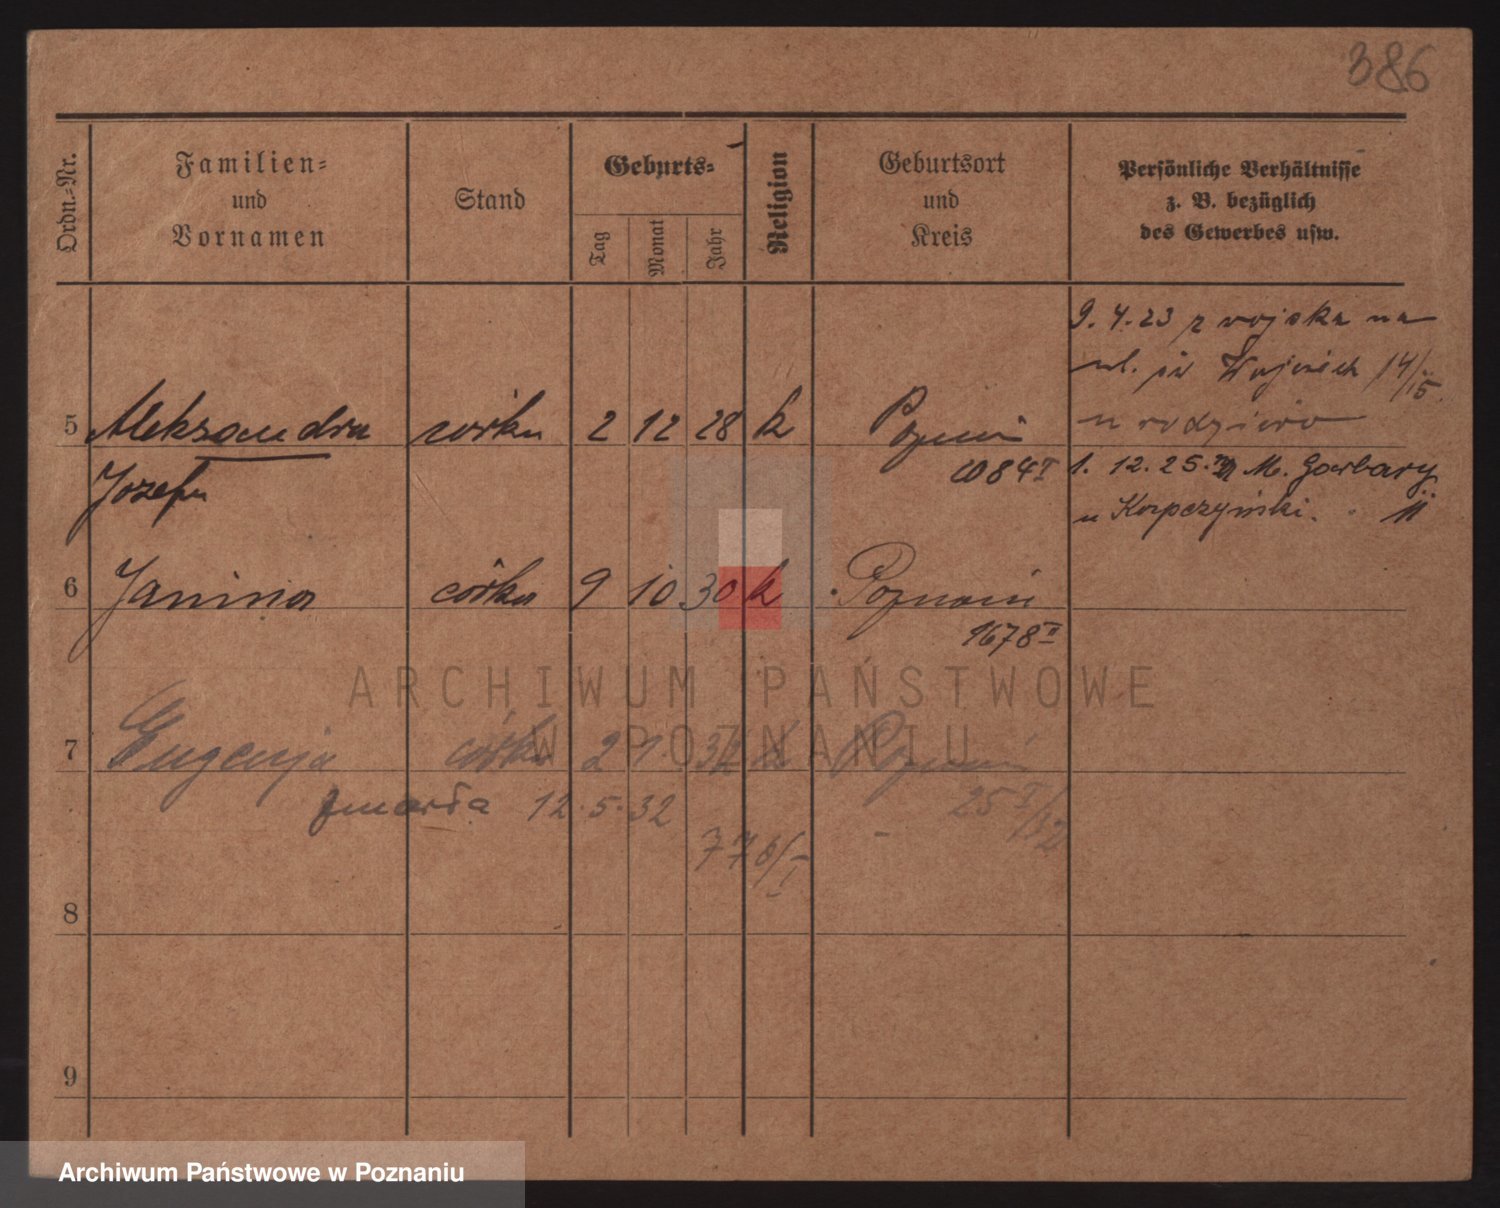 386
Ordn.-Nr.
Familien-
und
Vornamen
Stand
Geburts-
Tag
Monat
Jahr
Religion
Geburtsort
und
Kreis
Persönliche Verhältnisse
z. B. bezüglich
des Gewerbes usw.
9. 4. 23 z wojska na
ul. św Wojciech 14/15
u rodziców
5 Aleksandra córka 2 12 28 k Poznań
Józefa 1084 I
1. 12. 25. M. Garbary
u Korpczyński. 11
6 Janina córka 9 10 30 k Poznań
1678 II
7 Eugenja córka 2 1 32 k Poznań
zmarła 12.5.32 25 I/32
776/I
8
9
ARCHIWUM PAŃSTWOWE
W POZNANIU
Archiwum Państwowe w Poznaniu